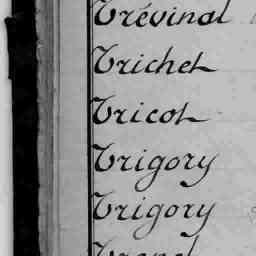 Trévinal
Trichet
Tricot
Trigory
Trigory